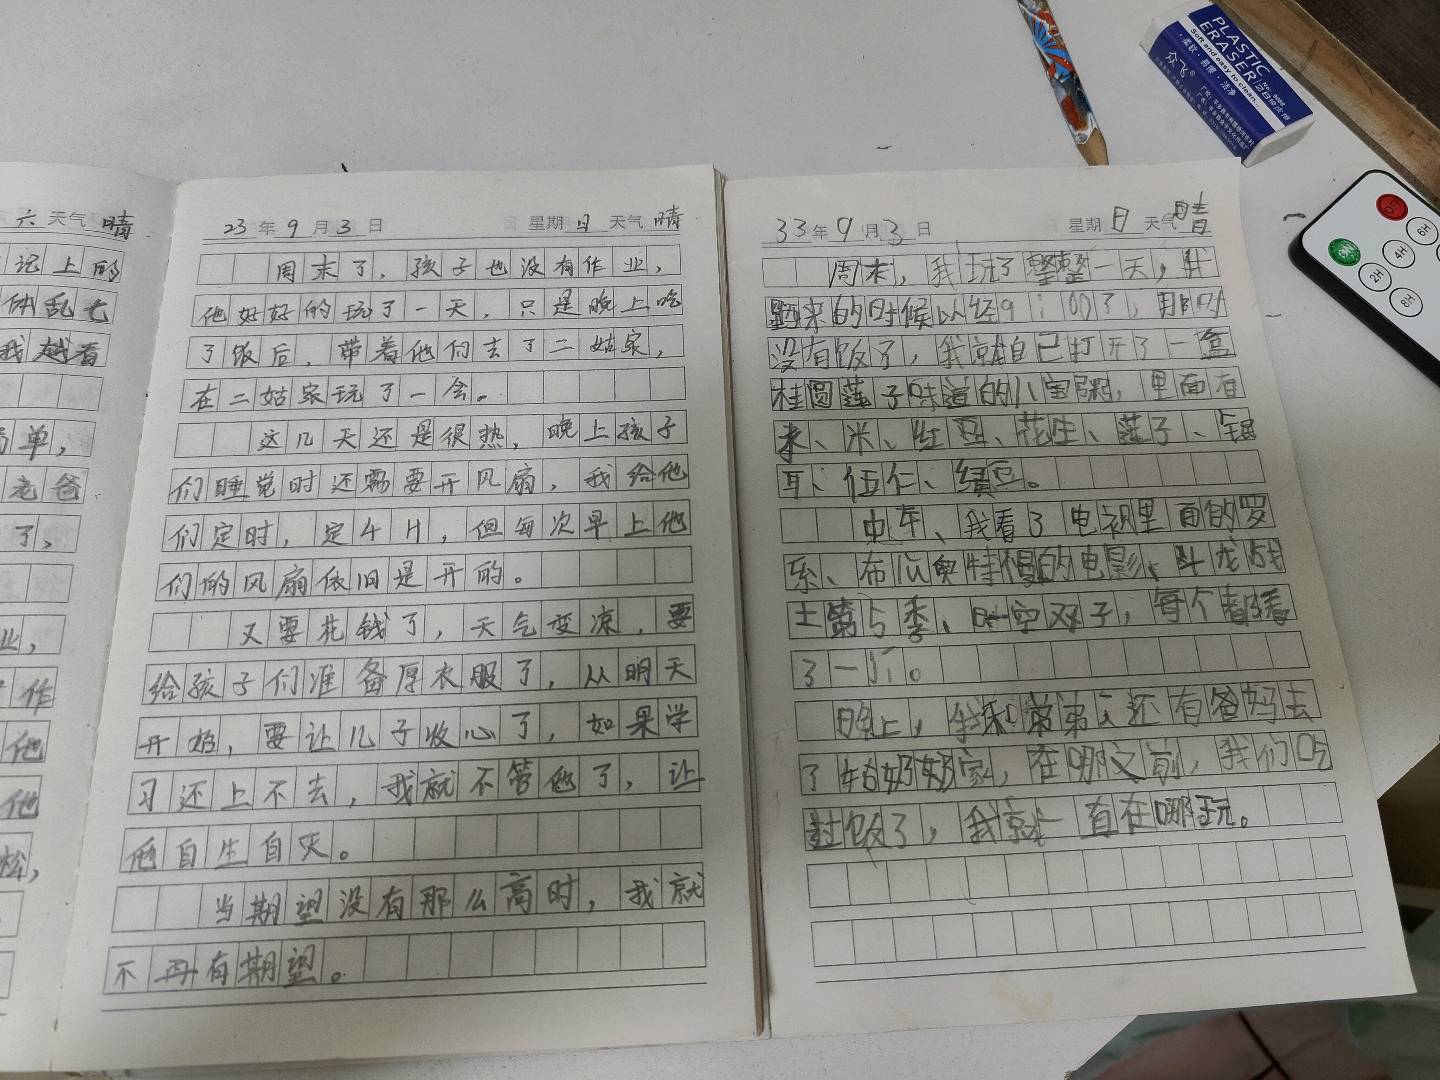 六 天气 晴
记上的
体乱七
我越看
单，
老爸
了，
业，
作
他
他
松，
23 年 9 月 3 日 星期 日 天气 晴
周末了，孩子也没有作业，
他好好的玩了一天，只是晚上吃
了饭后，带着他们去了二姑家，
在二姑家玩了一会。
这几天还是很热，晚上孩子
们睡觉时还需要开风扇，我给他
们定时，定4H，但每次早上他
们的风扇依旧是开的。
又要花钱了，天气变凉，要
给孩子们准备厚衣服了，从明天
开始，要让儿子收心了，如果学
习还上不去，我就不管他了，让
他自生自灭。
当期望没有那么高时，我就
不再有期望。
33 年 9 月 3 日 星期 日 天气 晴
周末，我玩了整整一天，我
醒来的时候以经9:00了，那时
没有饭了，我就自己打开了一盒
桂圆莲子味道的八宝粥，里面有
米、红豆、花生、莲子、银
耳、伍仁、绿豆。
中午、我看了电视里面的罗
系、布瓜奥特慢的电影、斗龙战
士第5季、时空双子，每个都看
了一
晚上，我和弟弟还有爸妈去
了姑奶奶家，在哪之前，我们吃
过饭了，我就一直在哪玩。
PLASTIC
ERASER
Soft and easy to clean...
·柔软·易擦·洁净
众飞®
OFF
ON
2H
4H
6H
8H